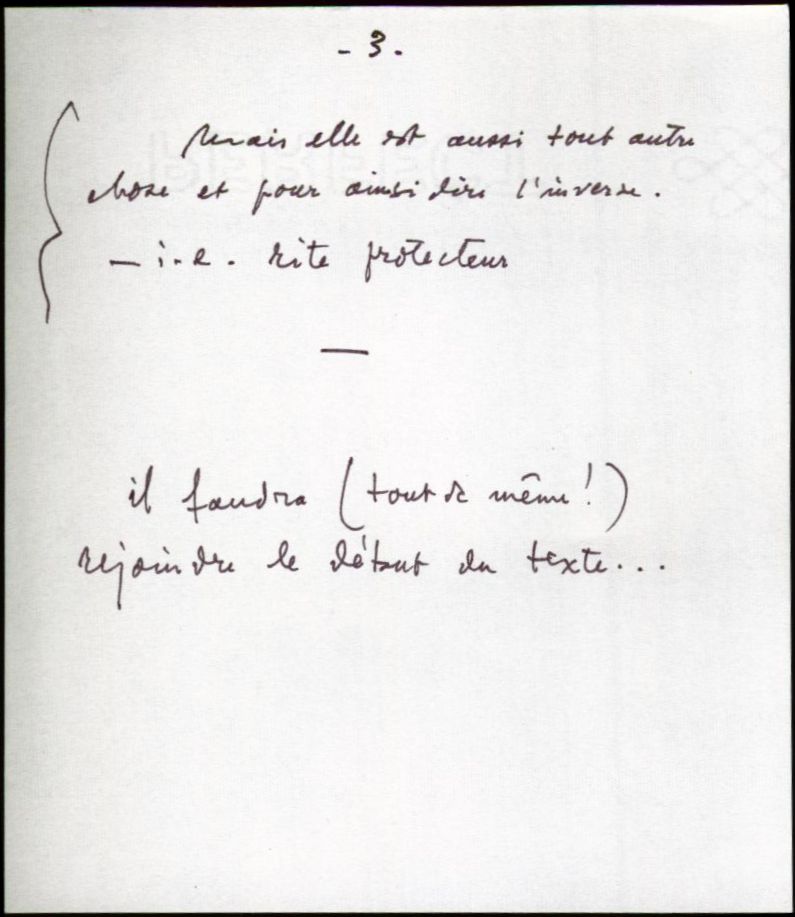 - 3 .
Mais elle est aussi tout autre
chose et pour ainsi dire l'inverse.
— i.e. rite protecteur
—
il faudra (tout de même!)
rejoindre le début du texte...